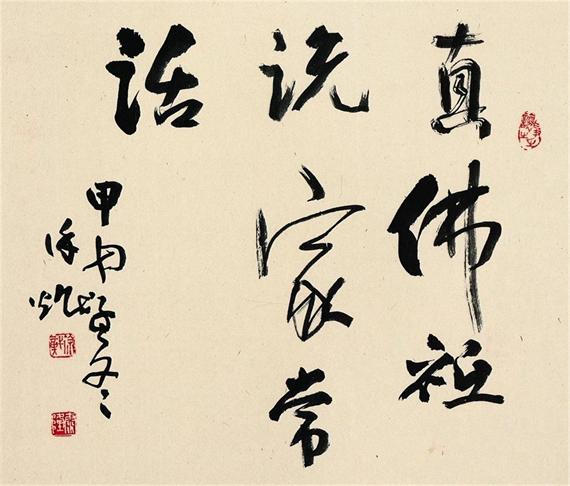 真佛祇
说家常
话
甲申冬